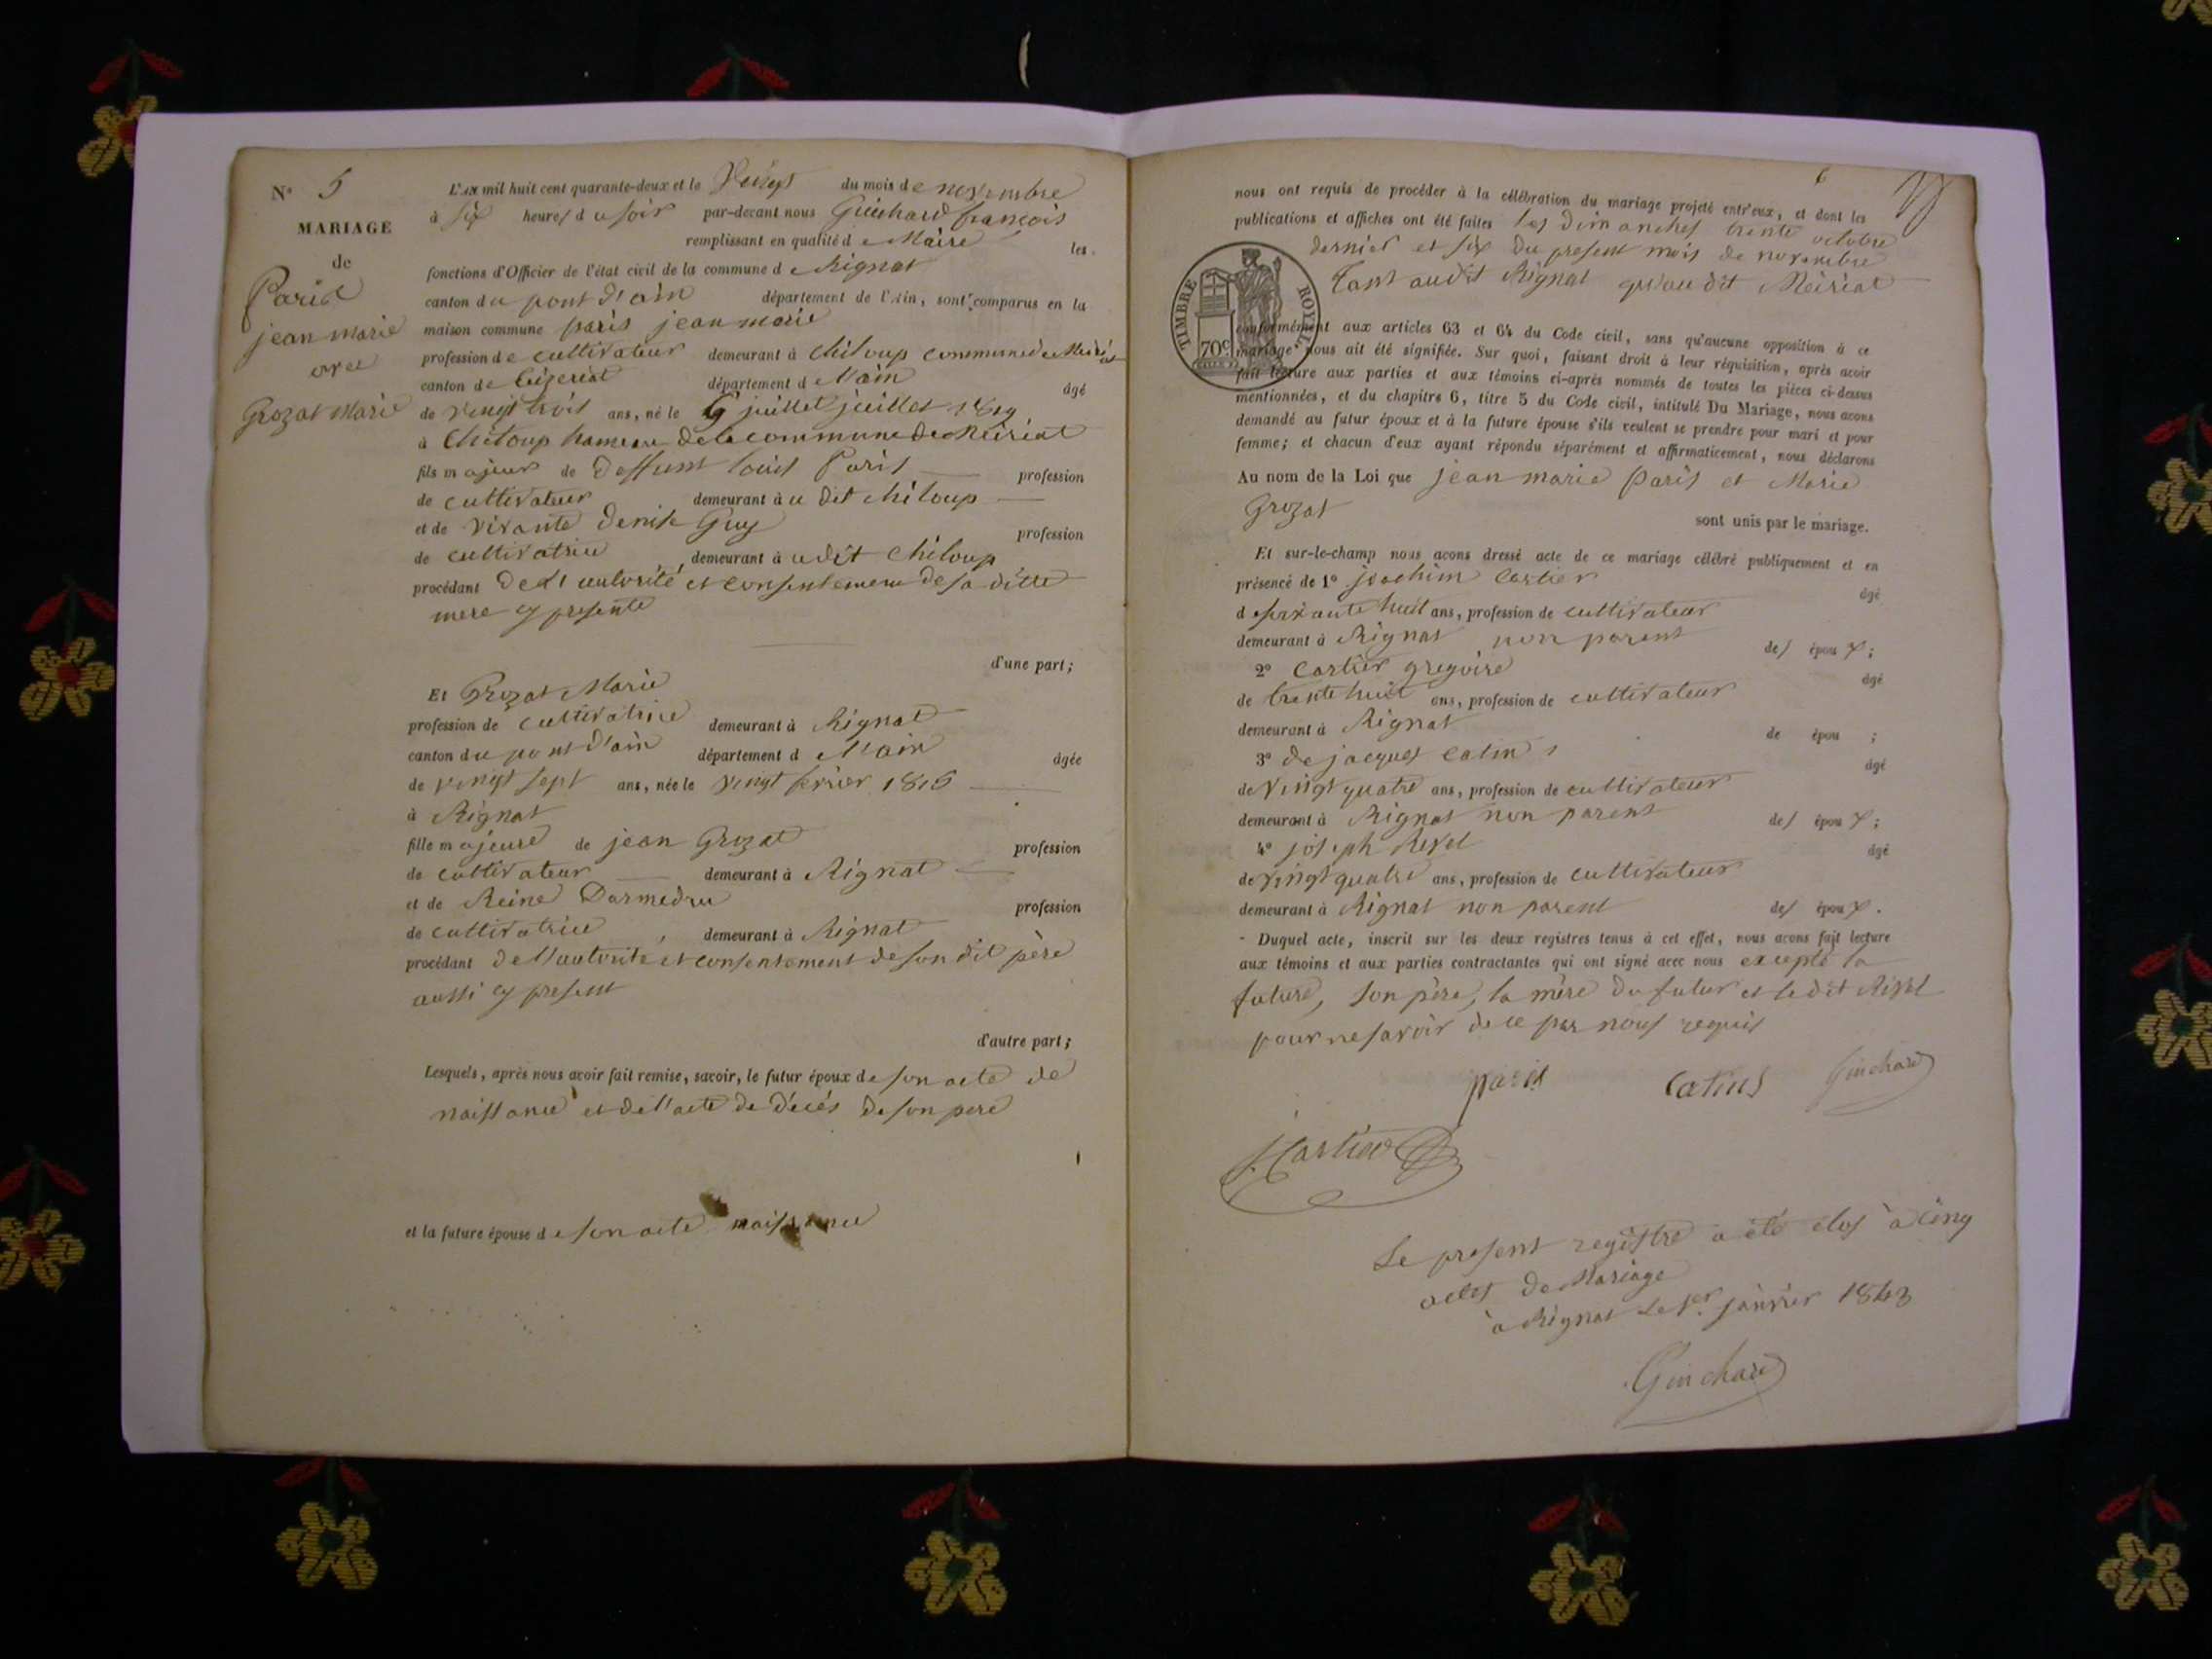 N° 5
MARIAGE
de
Paris
jean marie
avec
Grozat Marie
L'AN mil huit cent quarante-deux et le Vingt du mois de novembre
à six heures du soir par-devant nous Guichard françois
remplissant en qualité de Maire les
fonctions d'Officier de l'état civil de la commune de Rignat
canton du pont d'ain département de l'Ain, sont comparus en la
maison commune paris jean marie
profession de cultivateur demeurant à Chiloup commune de Meiriat
canton de Ceizeriat département de l'ain âgé
de vingt trois ans, né le juillet juillet 1819
à Chiloup hameau de la commune de Meiriat
fils majeur de deffunt louis Paris profession
de cultivateur demeurant à u dit chiloup
et de vivante denise Guy profession
de cultivatrice demeurant à udit chiloup
procédant de l'autorité et consentement de sa ditte
mere cy presente
d'une part;
Et Grozat Marie
profession de cultivatrice demeurant à Rignat
canton du pont d'ain département de l'ain âgée
de vingt sept ans, née le vingt fevrier 1815
à Rignat
fille majeure de jean Grozat profession
de cultivateur demeurant à Rignat
et de Reine Darmedru profession
de cultivatrice demeurant à Rignat
procédant de l'autorité et consentement de son dit père
aussi cy present
d'autre part;
Lesquels, après nous avoir fait remise, savoir, le futur époux de son acte de
naissance et de l'acte de décés de son pere
et la future épouse de son acte naissance
6
nous ont requis de procéder à la célébration du mariage projeté entr'eux, et dont les
publications et affiches ont été faites les dimanches trente octobre
dernier et six du present mois de novembre
tant audit Rignat qu'au dit Meiriat
TIMBRE ROYAL
70c
conformément aux articles 63 et 64 du Code civil, sans qu'aucune opposition à ce
mariage nous ait été signifiée. Sur quoi, faisant droit à leur réquisition, après avoir
fait lecture aux parties et aux témoins ci-après nommés de toutes les pièces ci-dessus
mentionnées, et du chapitre 6, titre 5 du Code civil, intitulé Du Mariage, nous avons
demandé au futur époux et à la future épouse s'ils veulent se prendre pour mari et pour
femme; et chacun d'eux ayant répondu séparément et affirmativement, nous déclarons
Au nom de la Loi que jean marie Paris et Marie
Grozat
sont unis par le mariage.
Et sur-le-champ nous avons dressé acte de ce mariage célébré publiquement et en
présence de 1° joachim Cartier âgé
de soixante huit ans, profession de cultivateur
demeurant à Rignat non parent des époux;
2° Cartier gregoire âgé
de trente huit ans, profession de cultivateur
demeurant à Rignat de épou ;
3° de jacques Catin âgé
de vingt quatre ans, profession de cultivateur
demeurant à Rignat non parent des époux;
4° joseph Revel âgé
de vingt quatre ans, profession de cultivateur
demeurant à Rignat non parent des époux.
Duquel acte, inscrit sur les deux registres tenus à cet effet, nous avons fait lecture
aux témoins et aux parties contractantes qui ont signé avec nous excepté la
future, son père, la mère du futur et le dit Revel
pour ne savoir de ce par nous requis
paris Catin Guichard
J. Cartier
Le present registre a été clos à cinq
actes de Mariage
à Rignat le 1er janvier 1843
Guichard